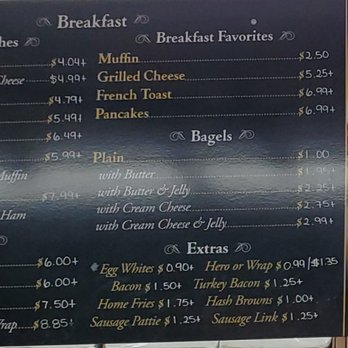 Breakfast
hes
$4.04+
Cheese $4.99+
$4.79+
$5.49+
$6.49+
$5.99+
Muffin
$7.99+
Ham
$6.00+
$6.00+
$7.50+
rap $8.85+
Breakfast Favorites
Muffin $2.50
Grilled Cheese $5.25+
French Toast $6.99+
Pancakes $6.99+
Bagels
Plain $1.00
with Butter $1.95+
with Butter & Jelly $2.25+
with Cream Cheese $2.75+
with Cream Cheese & Jelly $2.99+
Extras
Egg Whites $0.90+ Hero or Wrap $0.99/$1.35
Bacon $1.50+ Turkey Bacon $1.25+
Home Fries $1.75+ Hash Browns $1.00+
Sausage Pattie $1.25+ Sausage Link $1.25+